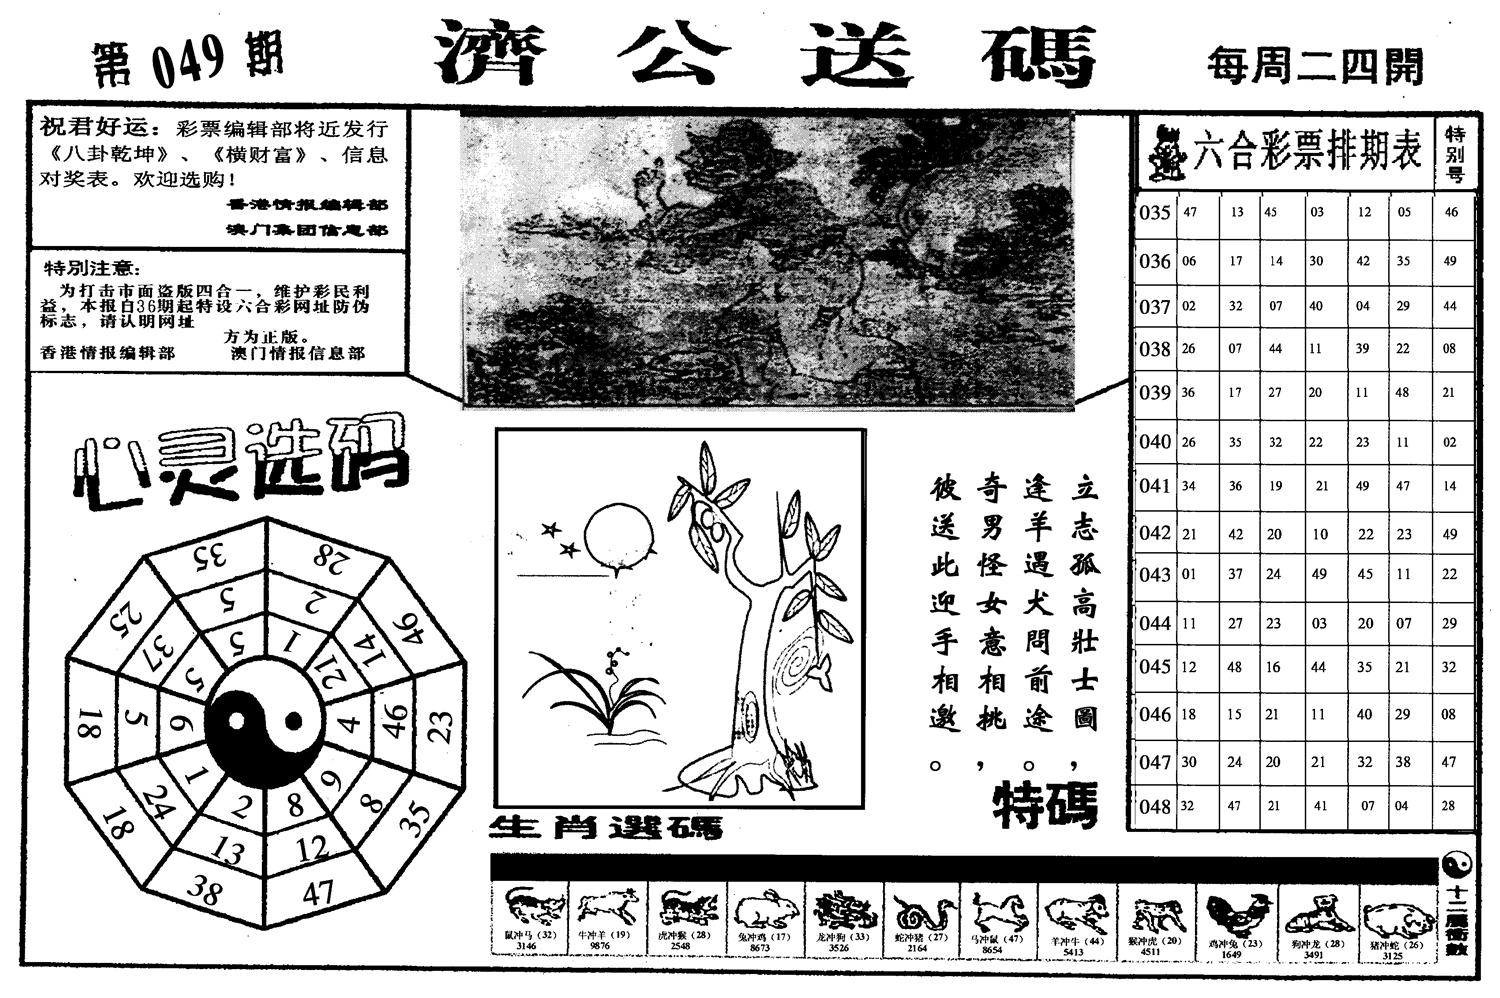 第 049 期
濟公送碼
每周二四開
祝君好运：彩票编辑部将近发行
《八卦乾坤》、《横财富》、信息
对奖表。欢迎选购！
香港情报编辑部
澳门集团信息部
特别注意：
为打击市面盗版四合一，维护彩民利
益，本报自36期起特设六合彩网址防伪
标志，请认明网址
方为正版。
香港情报编辑部 澳门情报信息部
心灵选码
35 28 46 23 35 47 38 18 18 25
5 2 14 46 8 12 13 24 5 37
5 1 21 4 9 8 2 1 6 5
立志孤高壯士圖，
逢羊遇犬問前途。
奇男怪女意相挑，
彼送此迎手相邀。
特碼
生肖選碼
六合彩票排期表 特别号
035 47 13 45 03 12 05 46
036 06 17 14 30 42 35 49
037 02 32 07 40 04 29 44
038 26 07 44 11 39 22 08
039 36 17 27 20 11 48 21
040 26 35 32 22 23 11 02
041 34 36 19 21 49 47 14
042 21 42 20 10 22 23 49
043 01 37 24 49 45 11 22
044 11 27 23 03 20 07 29
045 12 48 16 44 35 21 32
046 18 15 21 11 40 29 08
047 30 24 20 21 32 38 47
048 32 47 21 41 07 04 28
鼠冲马（32） 牛冲羊（19） 虎冲猴（28） 兔冲鸡（17） 龙冲狗（33） 蛇冲猪（27） 马冲鼠（47） 羊冲牛（44） 猴冲虎（20） 鸡冲兔（23） 狗冲龙（28） 猪冲蛇（26）
3146 9876 2548 8673 3526 2164 8654 5413 4511 1649 3491 3125
十二屬衝數